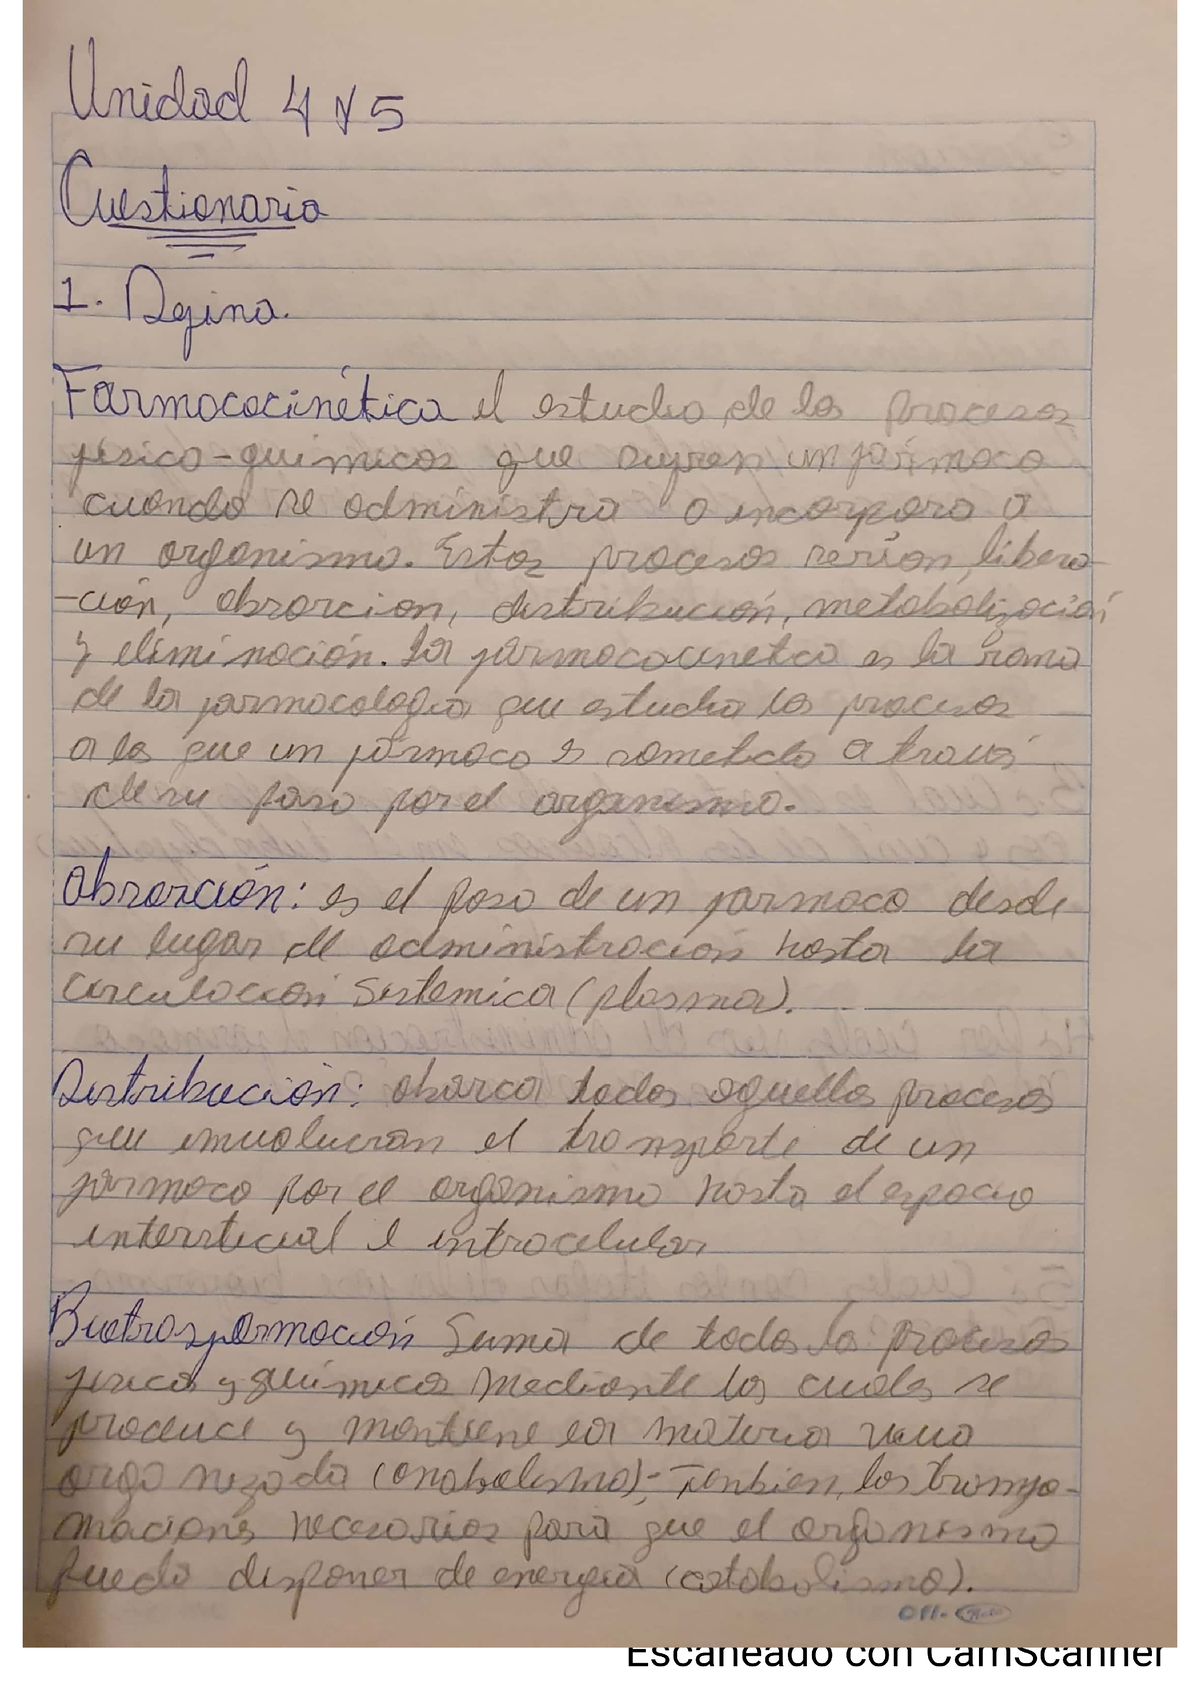 Unidad 4 y 5
Cuestionario
1. Defina.
Farmacocinética el estudio de los procesos
físico-químicos que sufren un fármaco
cuando se administra o incorpora a
un organismo. Estos procesos serían, libera-
-ción, absorción, distribución, metabolización
y eliminación. La farmacocinetica es la rama
de la farmacología que estudia los procesos
a los que un fármaco es sometido a través
de su paso por el organismo.
Absorción: es el paso de un farmaco desde
su lugar de administración hasta la
circulación Sistemica (plasma).
Distribución: abarca todos aquellos procesos
que involucran el transporte de un
farmaco por el organismo hasta el espacio
intersticial e intracelular
Biotrasformación Suma de todos los procesos
fisicos y químicos mediante los cuales se
produce y mantiene la materia viva
organizada (anabolismo); Tanbien, las transfo-
maciones necesarias para que el organismo
pueda disponer de energía (catabolismo).
Escaneado con CamScanner